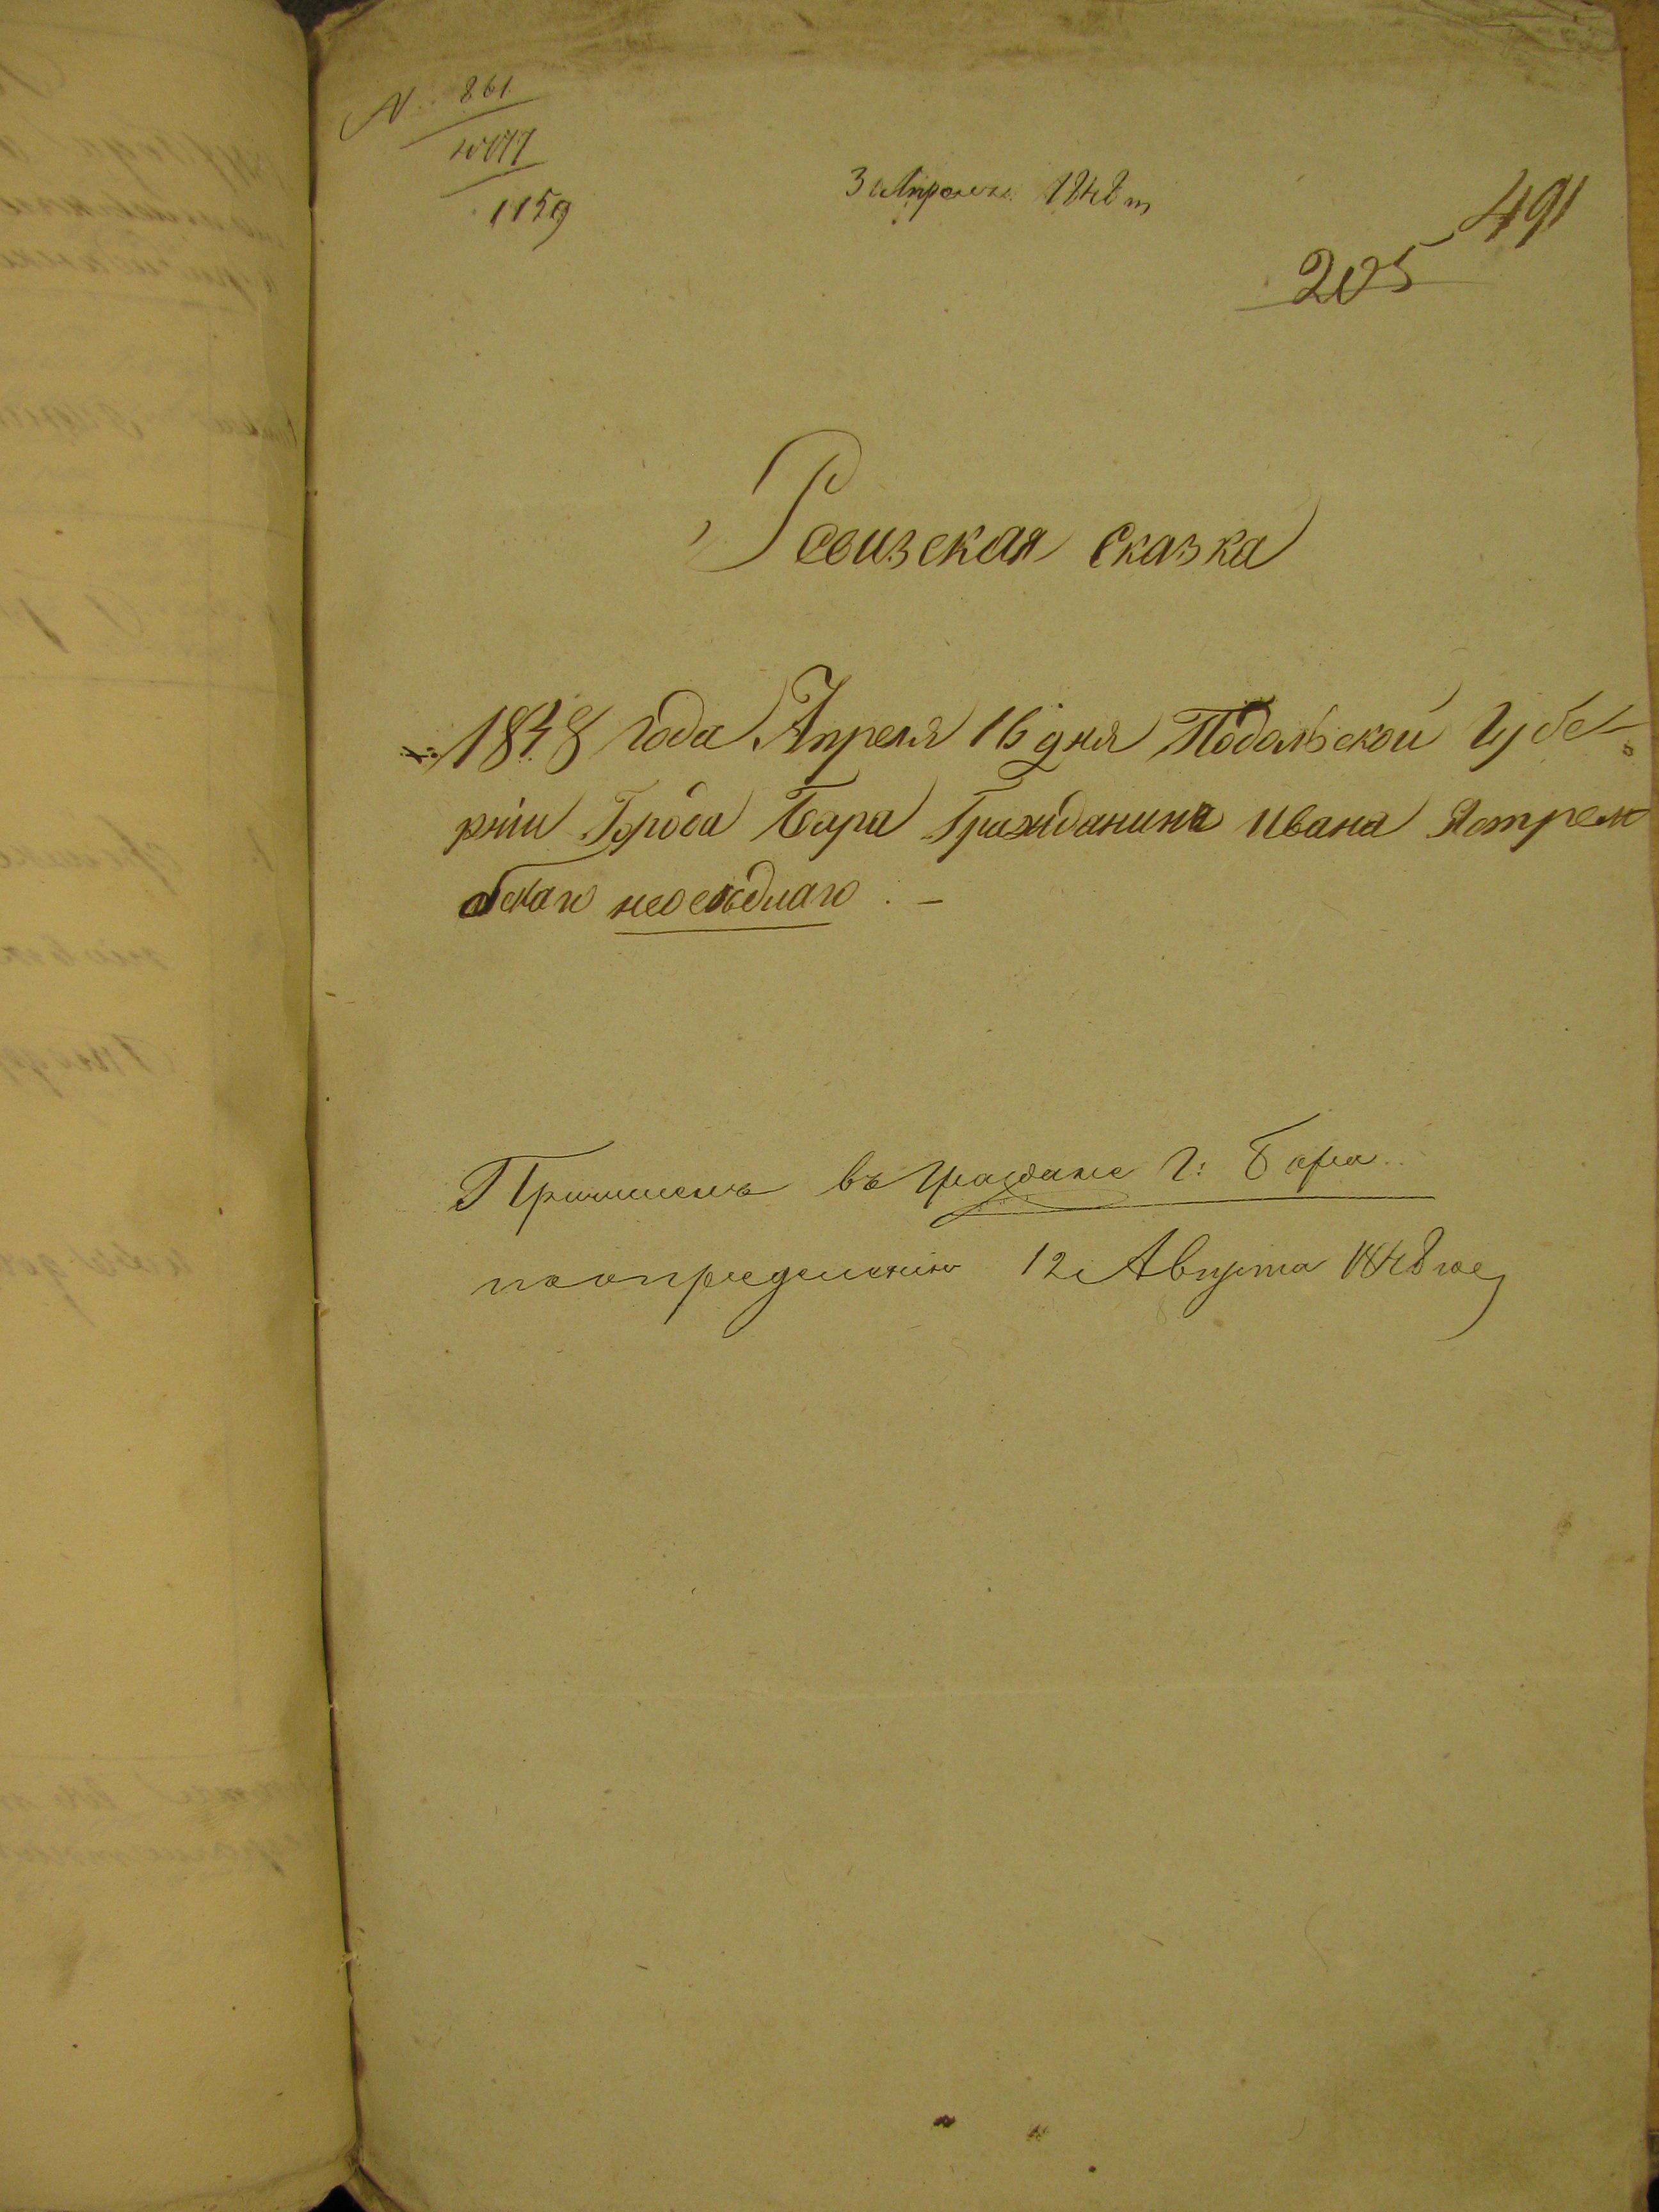 N 861
1159
3 Апреля 1848
491
205
Ревизская Сказка
1848 года Апреля 16 дня Подольской Губе-
рніи Города Бара Гражданина Ивана Ястрем
бскаго неоседлаго . —
Причисленъ въ граждане Г: Бара
по определению 12 Августа 1848 года